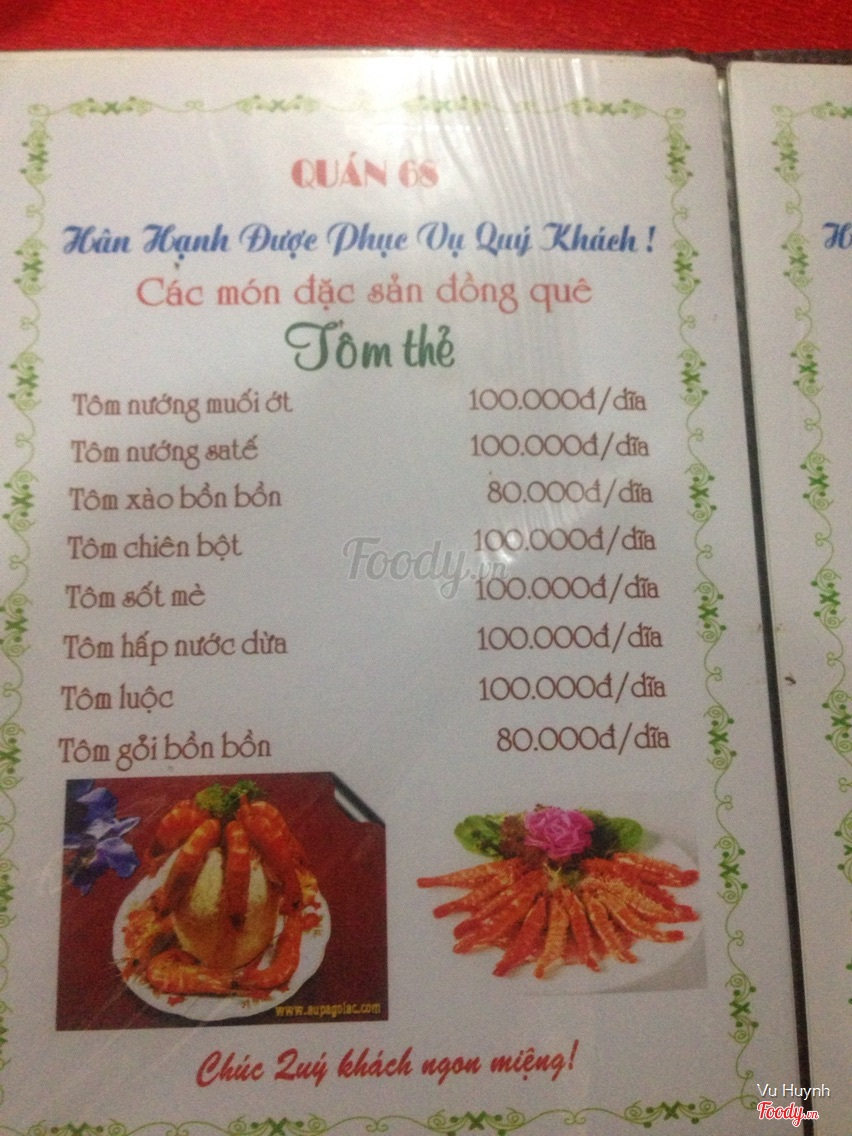 QUÁN 68
Hân Hạnh Được Phục Vụ Quý Khách !
Các món đặc sản đồng quê
Tôm thẻ
Tôm nướng muối ớt 100.000đ/dĩa
Tôm nướng satế 100.000đ/dĩa
Tôm xào bồn bồn 80.000đ/dĩa
Tôm chiên bột 100.000đ/dĩa
Foody.vn
Tôm sốt mè 100.000đ/dĩa
Tôm hấp nước dừa 100.000đ/dĩa
Tôm luộc 100.000đ/dĩa
Tôm gỏi bồn bồn 80.000đ/dĩa
www.aupagolac.com
Chúc Quý khách ngon miệng!
Vu Huynh
Foody.vn